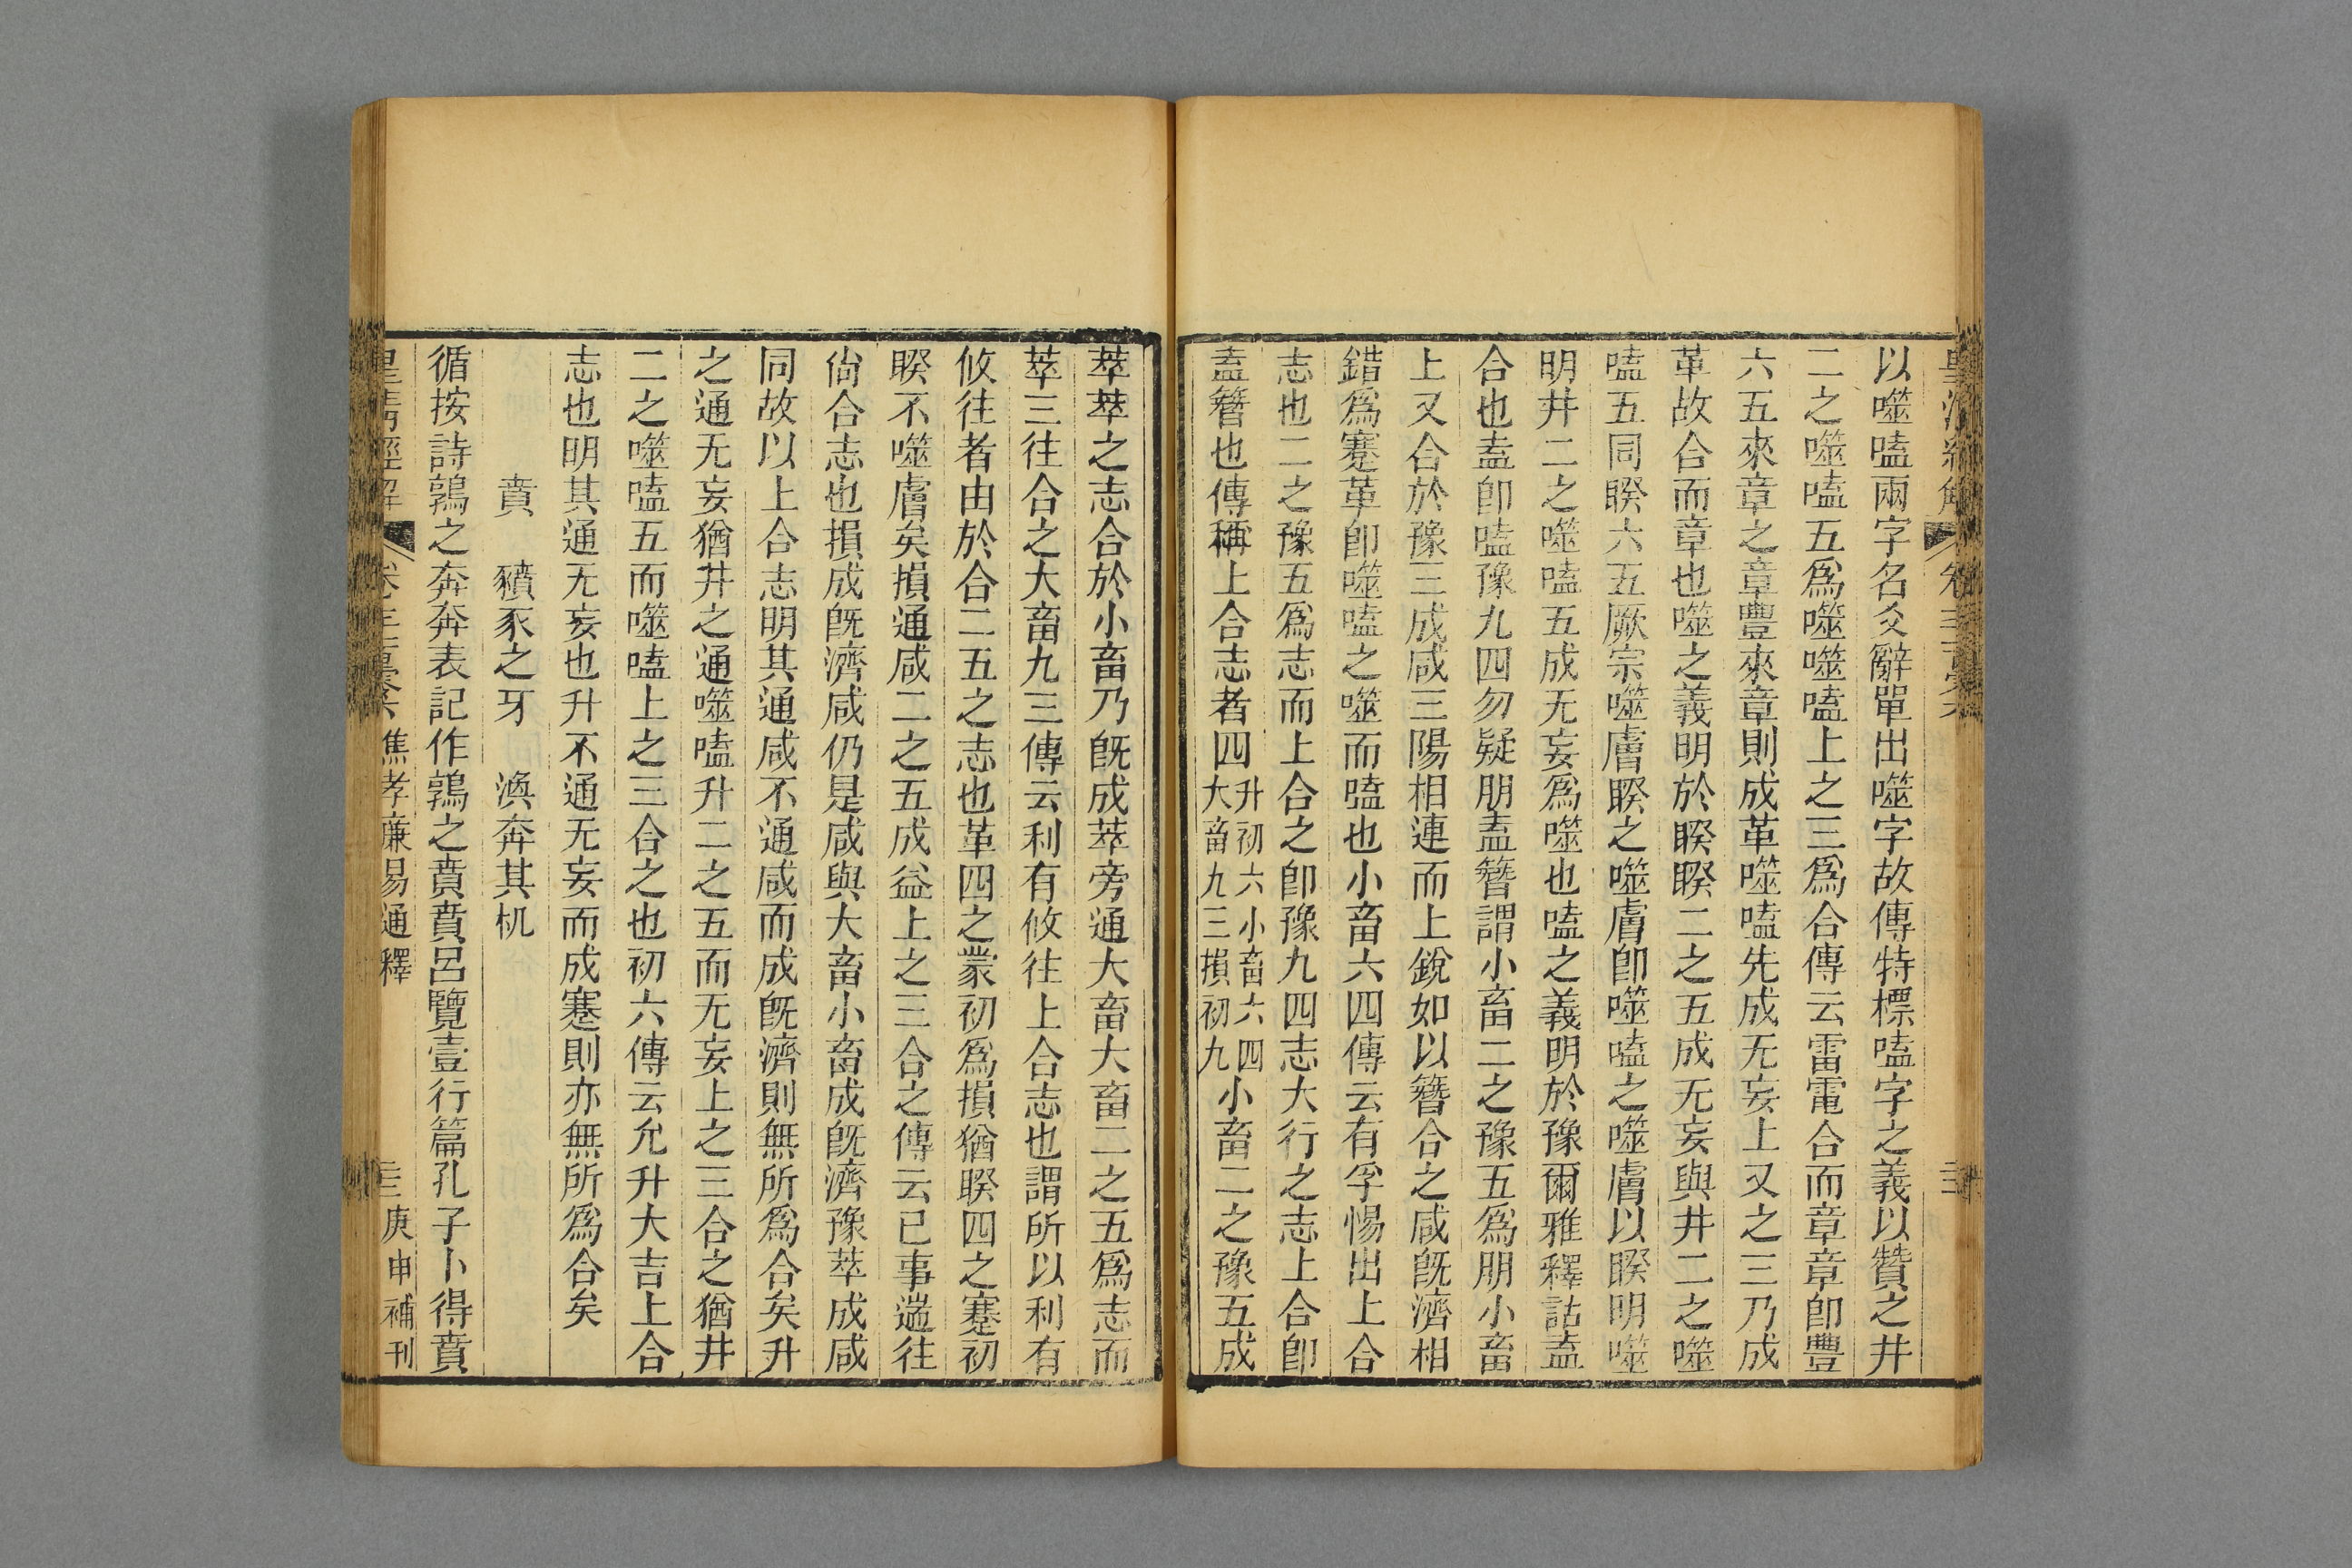 以噬嗑兩字名爻辭單出噬字故傳特標嗑字之義以贊之井
二之噬嗑五爲噬噬嗑上之三爲合傳云雷電合而章章卽豐
六五來章之章豐來章則成革噬嗑先成无妄上又之三乃成
革故合而章也噬之義明於睽睽二之五成无妄與井二之噬
嗑五同睽六五厥宗噬膚睽之噬膚卽噬嗑之噬膚以睽明噬
明井二之噬嗑五成无妄爲噬也嗑之義明於豫爾雅釋詁盍
合也盍卽嗑豫九四勿疑朋盍簪謂小畜二之豫五爲朋小畜
上又合於豫三成咸三陽相連而上銳如以簪合之咸旣濟相
錯爲蹇革卽噬嗑之噬而嗑也小畜六四傳云有孚惕出上合
志也二之豫五爲志而上合之卽豫九四志大行之志上合卽
盍簪也傳稱上合志者四升初六小畜六四大畜九三損初九小畜二之豫五成
萃萃之志合於小畜乃旣成萃旁通大畜大畜二之五爲志而
萃三往合之大畜九三傳云利有攸往上合志也謂所以利有
攸往者由於合二五之志也革四之蒙初爲損猶睽四之蹇初
睽不噬膚矣損通咸二之五成益上之三合之傳云已事遄往
尙合志也損成旣濟咸仍是咸與大畜小畜成旣濟豫萃成咸
同故以上合志明其通咸不通咸而成旣濟則無所爲合矣升
之通无妄猶井之通噬嗑升二之五而无妄上之三合之猶井
二之噬嗑五而噬嗑上之三合之也初六傳云允升大吉上合
志也明其通无妄也升不通无妄而成蹇則亦無所爲合矣
賁　豶豕之牙　渙奔其机
循按詩鶉之奔奔表記作鶉之賁賁呂覽壹行篇孔子卜得賁
皇淸經解　焦孝廉易通釋　三　庚申補刊